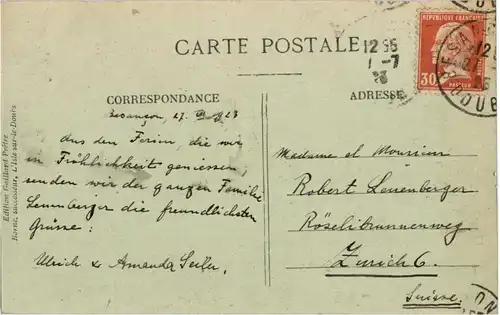 CARTE POSTALE
RÉPUBLIQUE FRANÇAISE
30
PASTEUR
12 35
1-7
CORRESPONDANCE
ADRESSE
Besançon, 27.
Aus den Ferien, die wir
in Fröhlichkeit geniessen,
senden wir der ganzen Familie
Leuenberger die freundlichsten
Grüsse:
Ulrich & Amanda Seiler,
Madame et Monsieur
Robert Leuenberger
Röselibrunnenweg
Zurich 6.
Suisse.
Edition Gaillard-Prêtre
Borne, successeur, L'Isle-sur-le-Doubs